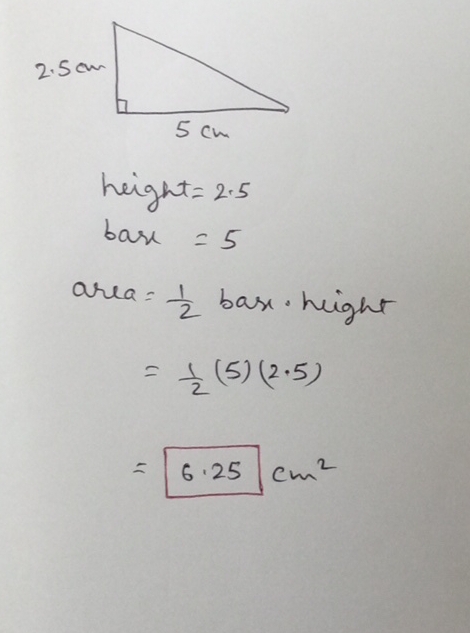 2.5 cm
5 cm
height = 2.5
base = 5
area = 1/2 base · height
= 1/2 (5)(2.5)
= 6.25 cm²